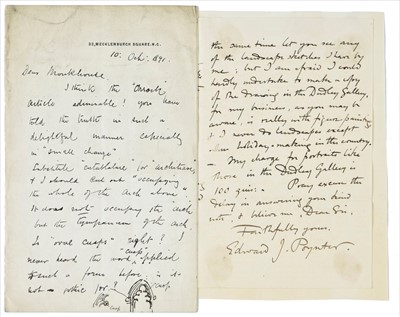 MECKLENBURGH SQUARE. W.C.
10. Oct. 1891.
Dear Monkhouse,
I think the
article admirable! you have
told the truth in such a
delightful manner especially
in "small change"
Substitute for architecture
& I should cut out "occupying
the whole of the arch above"
It does not occupy the arch
but the tympanum of the arch.
Is "oval cusps" right? I
never heard the word "cusp" applied
to such a form before, is it
not for?
cusp
the same time let you see any
of the landscape sketches I have by
me; but I am afraid I could
hardly undertake to make a copy
of the drawing in the Dudley Gallery,
for my business, as you may be
aware, is really with figure painting
& I never do landscapes except
when holiday-making in the country.
— My charge for portraits like
those in the Dudley Gallery is
100 guins. Pray excuse the
delay in answering your kind
note, & believe me Dear Sir,
Faithfully yours,
Edward J. Poynter.